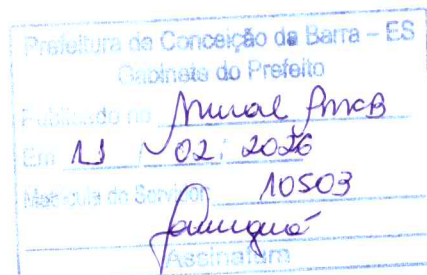 Prefeitura de Conceição da Barra – ES
Gabinete do Prefeito
Publicado no Mural PMCB
Em 11 / 02 / 2026
Matrícula do Servidor 10503
Assinatura